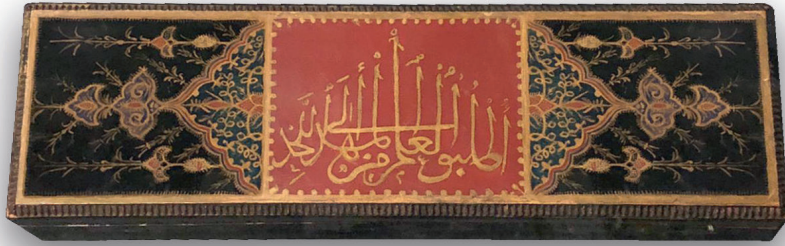 اطلبوا العلم من المهد إلى اللحد